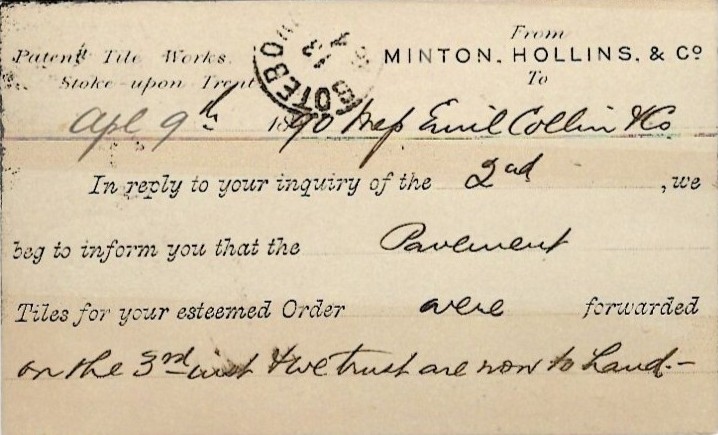 From
Patent Tile Works. MINTON, HOLLINS, & Co
Stoke-upon Trent To
Apl 9th 1890 Mess Emil Collin & Co
In reply to your inquiry of the 2nd, we
beg to inform you that the Pavement
Tiles for your esteemed Order were forwarded
on the 3rd inst & we trust are now to hand.-